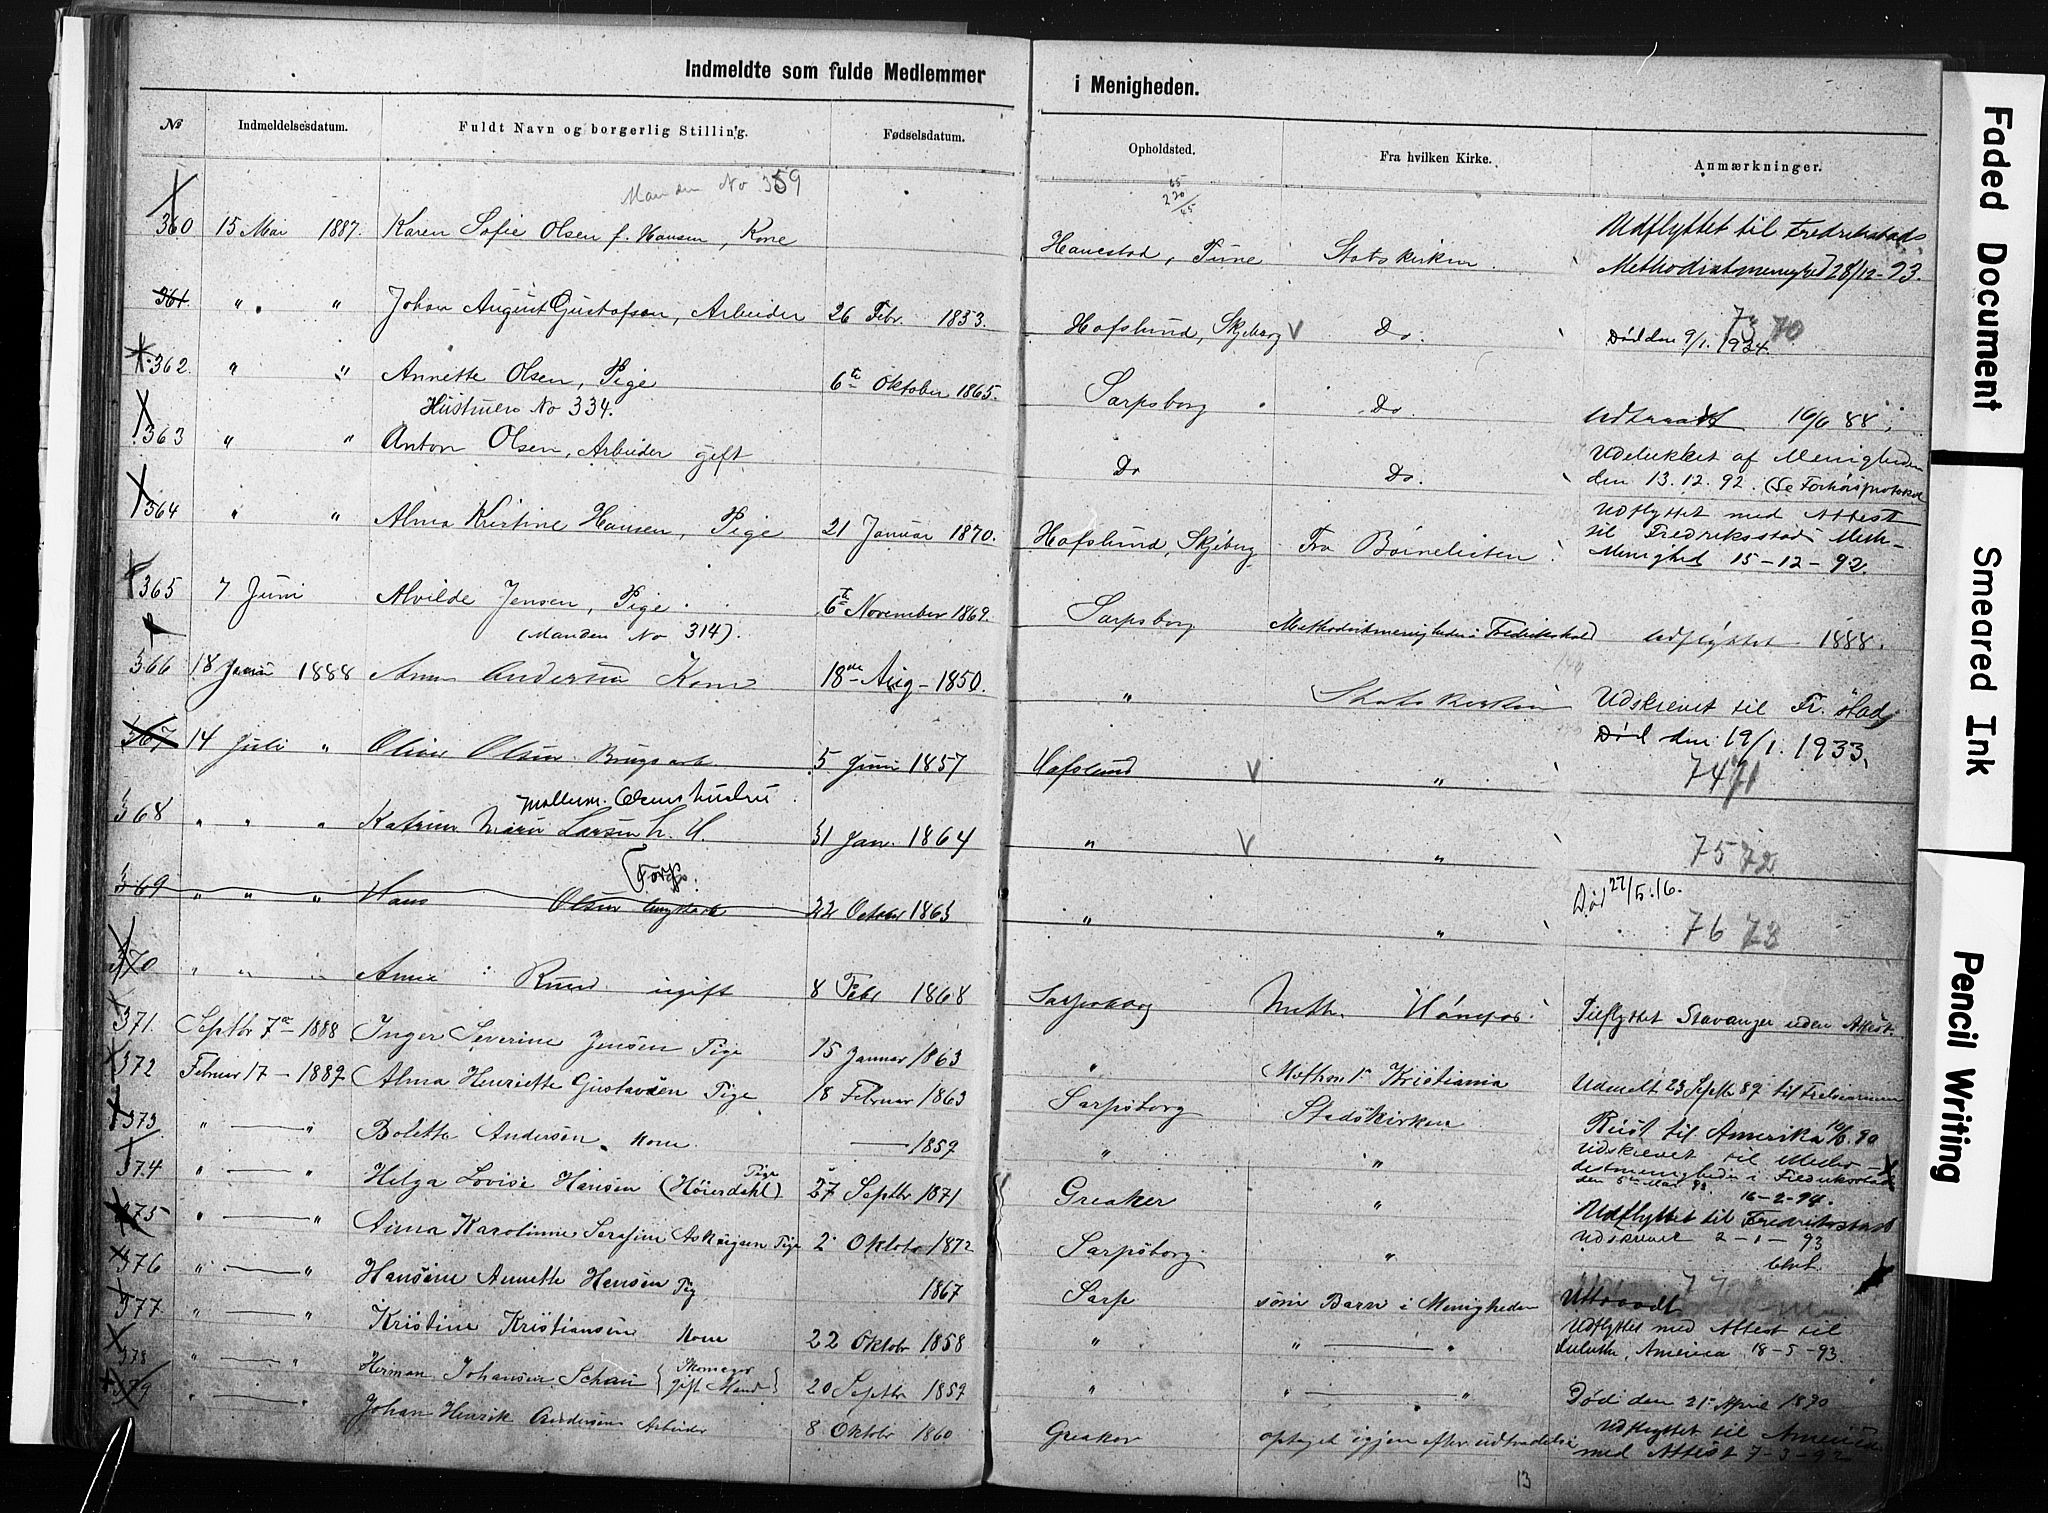 Indmeldte som fulde Medlemmer i Menigheden.
No Indmeldelsesdatum. Fuldt Navn og borgerlig Stilling. Fødselsdatum. Opholdsted. Fra hvilken Kirke. Anmærkninger.
Manden No 359
65
220/45
360 15 Mai 1887. Karen Sofie Olsen f. Hansen, Kone Hanestad, Tune Statskirken. Udflyttet til Fredrikstads
Methodistmenighed 28/12-23.
361 " " " Johan August Gustafsen, Arbeider 26 Febr. 1853. Hafslund, Skjeberg V Do. Død den 9/1. 1934.
73 70
362 " " Annette Olsen, Pige 6te Oktober 1865. Sarpsborg Do. Udtraadt 16/6 88
Hustruen No 334.
363 " " Anton Olsen, Arbeider gift Do Do. Udelukket af Menigheden
den 13.12.92. (Se Forhørsprotokol
364 " " Alma Kristine Hansen, Pige 21 Januar 1870. Hafslund, Skjeberg Fra Børnelisten Udflyttet med Attest
til Fredriksstad Meth-
Menighed 15-12-92.
365 7 Juni Alvilde Jensen, Pige 6te November 1869. Sarpsborg Methodistmenigheden i Fredrikshald Udflyttet 1888.
(Manden No 314).
366 18 Juni 1888 Anna Andersen Kone 18de Aug - 1850. " Statskirken Udskrevet til Fr. stad
367 14 Juli " Oliver Olsen Brugsarb. 5 Juni 1857 Hafslund V " Død den 19/1. 1933.
74 71
368 " " " Katrine Marie Larsen 31 Jan. 1864 " V " 75 72
369 " " " Hans Olsen 22 October 1863 " " Død 27/5.16.
76 73
370 " " " Anna Ruud ugift 8 Febr 1868 Sarpsborg Meth. Hønefos. Tilflyttet Stavanger uden Attest.
371. Septbr 7de 1888 Inger Severine Jensen Pige 15 Januar 1863 " Methom i Kristiania Udmeldt 23 Septbr 89 til Frelsearmeen
372 Februar 17 - 1889 Alma Henriette Gustavsen Pige 18 Februar 1863 Sarpsborg Stadskirken Reist til Amerika 10/6.90
373 " — " Boletta Andersen. Kone — 1859 " " Udskrevet til Metho-
distmenigheden i Fredriksstad
den 5te Mai 93
374 " — " Helga Lovise Hansen (Høierdahl) Pige 27 Septbr 1871 Greaker " 16-2-94.
Udflyttet til Fredrikstad
375 " — " Anna Karolinne Serafine Aslaugsen Pige 2 Oktobr 1872 Sarpsborg. " Udskrevet 2-1-93
376 " — " Hansine Annette Hansen Pig 1867 Sarp som Barn i Menigheden Uttraadt
377 " — " Kristine Kristiansen Kone 22 Oktobr 1858 " " — " Udflyttet med Attest til
Duluth, America 18-5-93.
378 " — " Herman Johansen Schau {Skomager gift Mand} 20 Septbr 1859 " " — " Død den 21 April 1890
379 " — " Johan Henrik Andersen Arbeider 8 Oktobr 1860 Greaker optaget igjen efter udtrædelse Udflyttet til America
med Attest 7-3-92
13
Faded Document
Smeared Ink
Pencil Writing